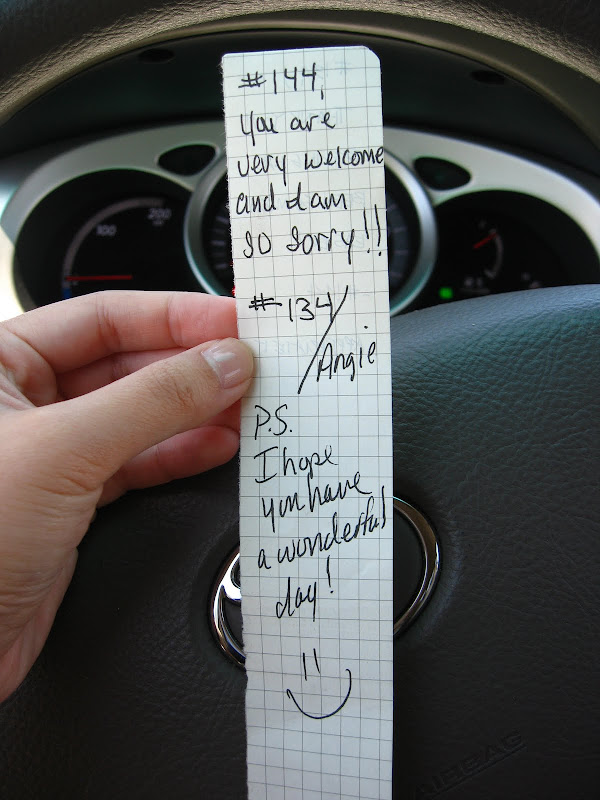 #144,
You are
very welcome
and I am
so sorry!!
#134/
Angie
P.S.
I hope
you have
a wonderful
day!
200
100
AIRBAG